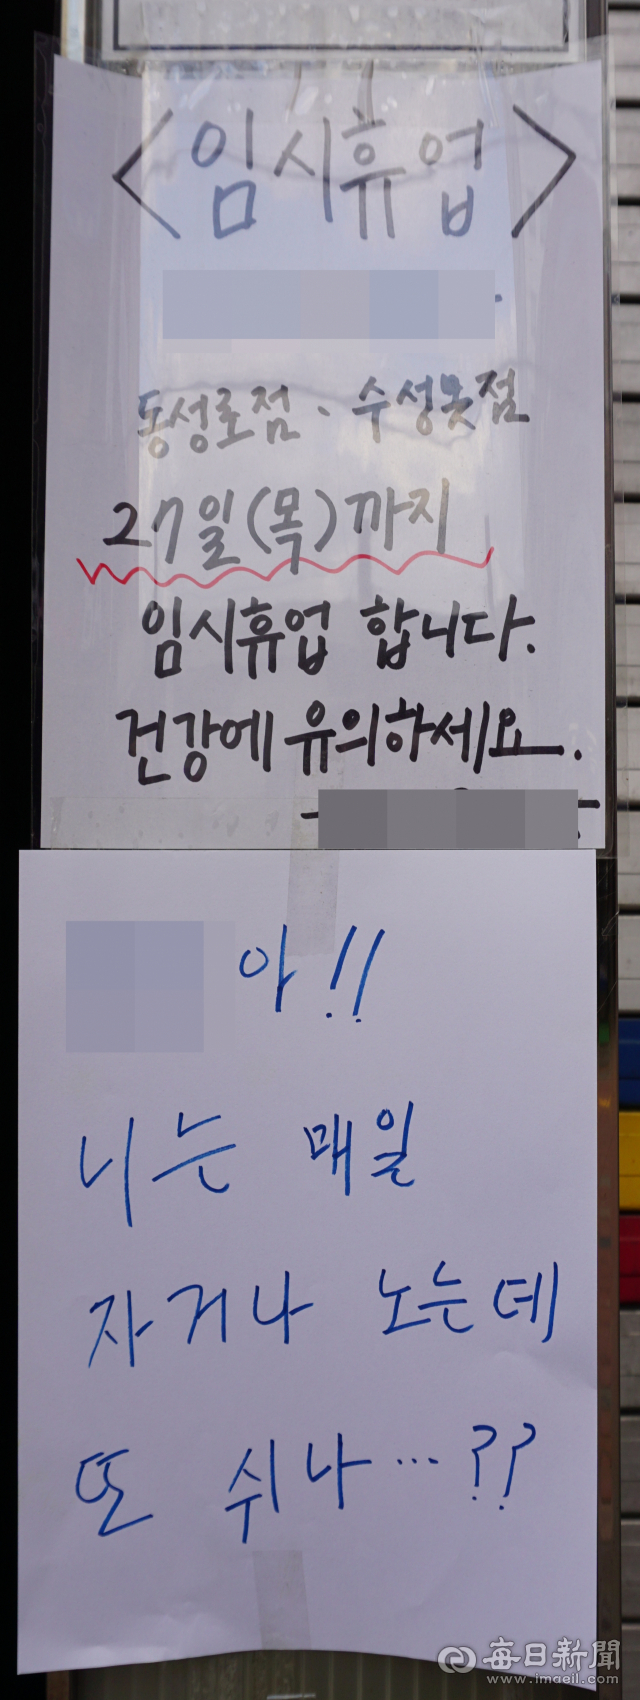 <임시휴업>
동성로점、수성못점
27일(목)까지
임시휴업 합니다.
건강에 유의하세요.
아!!
니는 매일
자거나 노는데
또 쉬나…??
每日新聞
www.imaeil.com